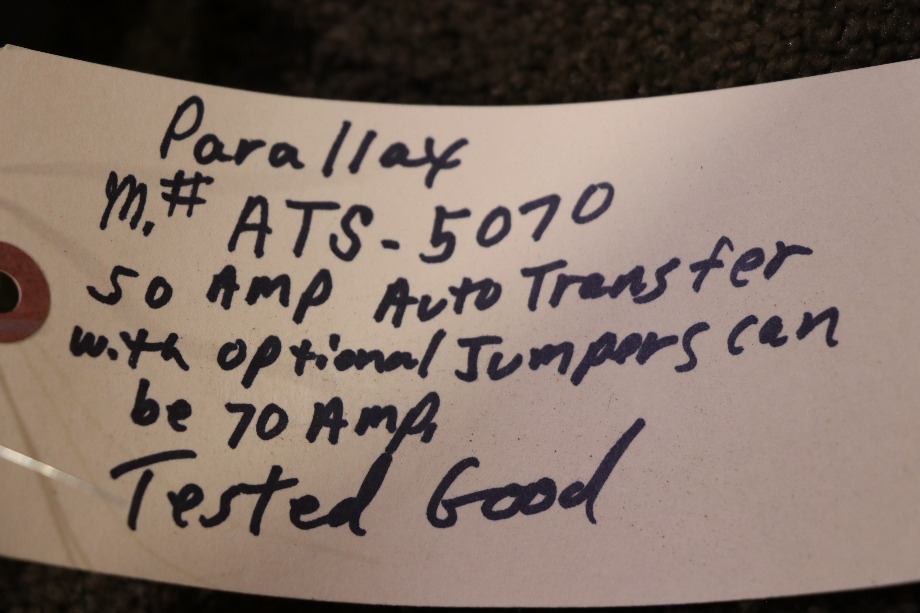 Parallax
M.# ATS-5070
50 Amp Auto Transfer
with optional Jumpers can
be 70 Amp.
Tested Good